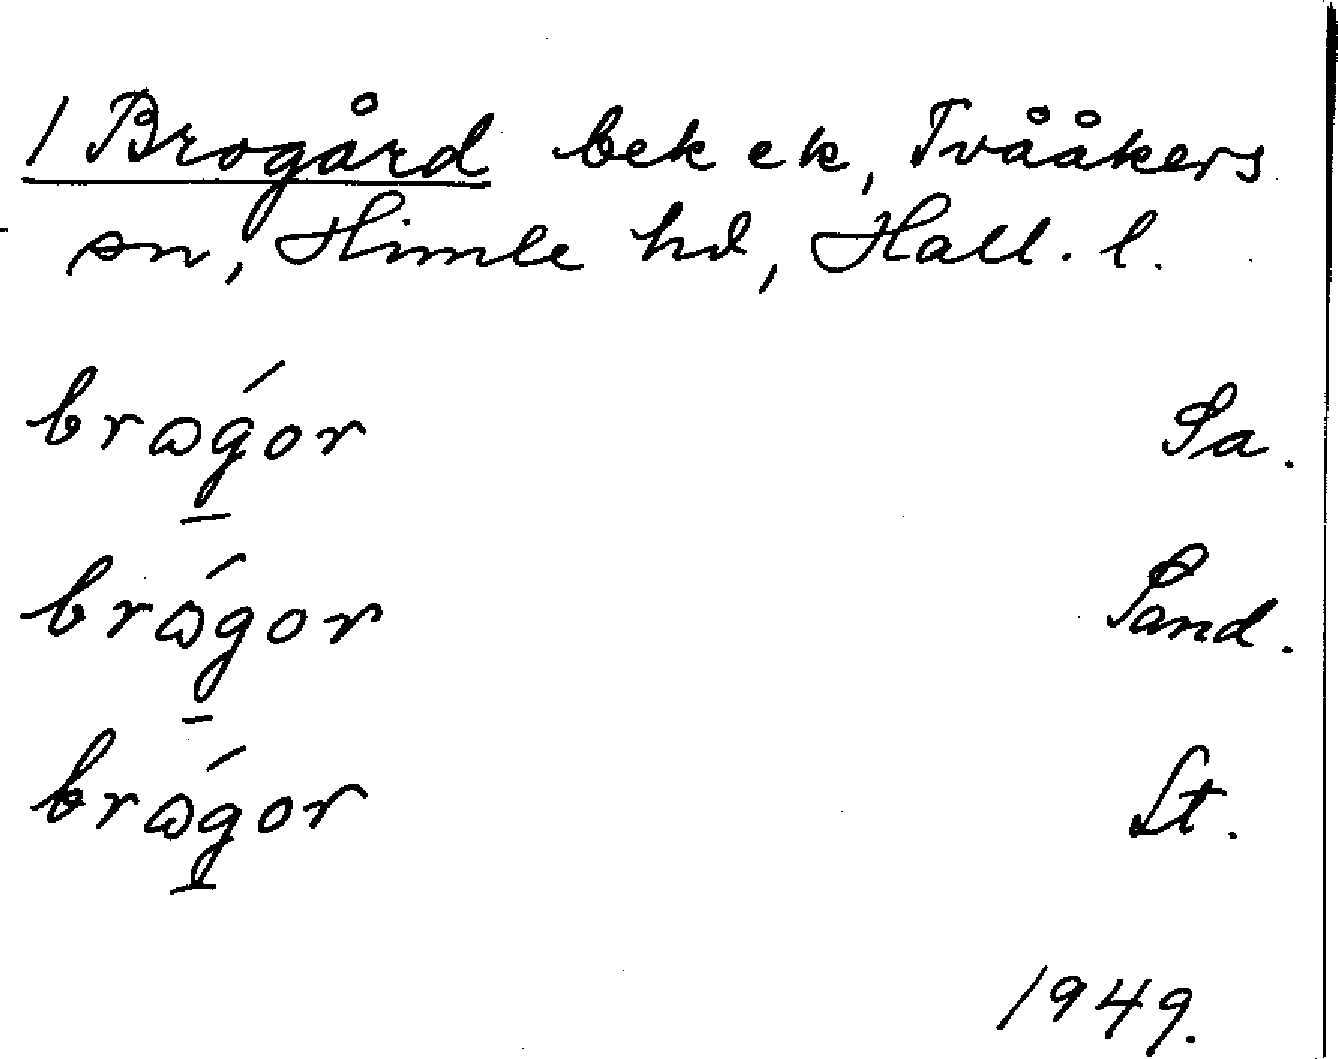 1 Brogård bek ek, Tvååkers
sn, Himle hd, Hall. l.
brωgor Sa.
brωgor Sand.
brωgor St.
1949.